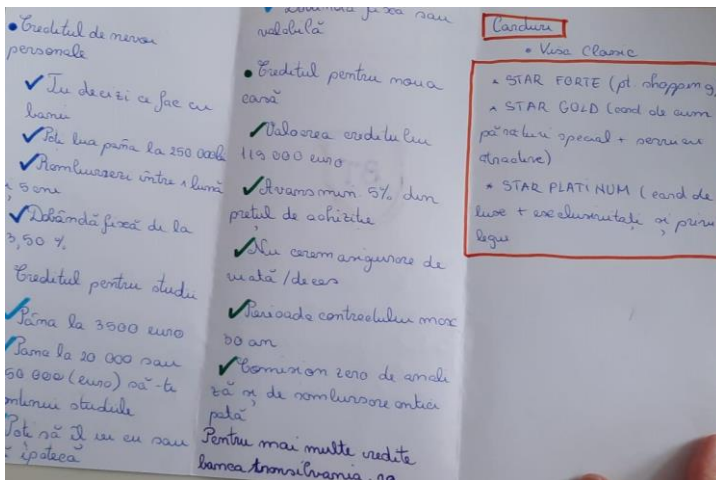 • Creditul de nevoi
personale
✓ Tu decizi ce fac cu
banii
✓ Poti lua pâna la 250 000 lei
✓ Rambursezi între 1 lună
5 ani
✓ Dobândă fixă de la
3,50 %
Creditul pentru studii
✓ Pâna la 3500 euro
✓ Pana la 20 000 sau
50 000 (euro) să-ti
studiile
Poti să îl iei cu sau
ipoteca
fixa sau
valabilă
• Creditul pentru noua
casă
✓ Valoarea creditului
119 000 euro
✓ Avans min. 5% din
prețul de achizitie
✓ Nu cerem asigurare de
viată / deces
✓ Perioada contractului max
30 ani
✓ Comision zero de anali
ză și de rambursare antici
pată
Pentru mai multe credite
banca transilvania. ro
Carduri
• Visa Clasic
* STAR FORTE (pt. shopping,
* STAR GOLD (card de cum
părături special + servicii
atractive)
* STAR PLATINUM (card de
lux + exclusivitați și privi
legii